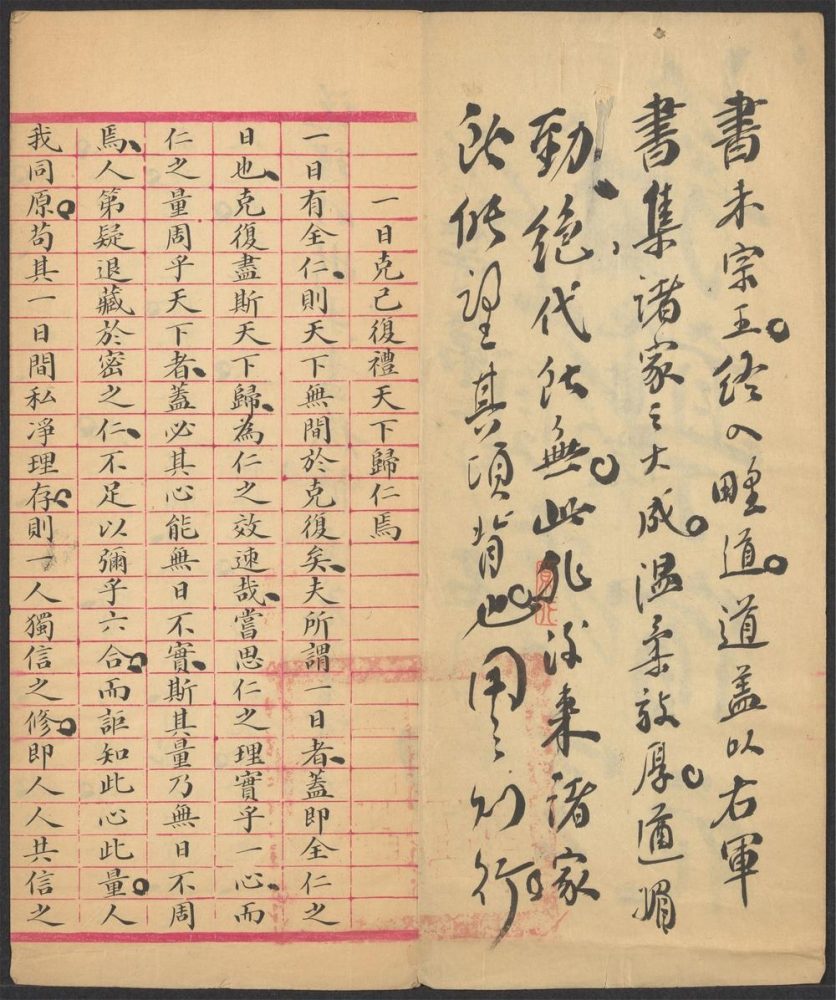 書未宗王。終入野道。道蓋以右軍
書集諸家之大成。溫柔敦厚。遒媚
勁、絕代所無。此非後來諸家
所能望其項背也。用之則行。
一日克己復禮天下歸仁焉
一日有全仁、則天下無間於克復矣、夫所謂一日者、蓋即全仁之
日也、克復盡斯天下歸、為仁之效速哉、嘗思仁之理實乎一心、而
仁之量周乎天下者、蓋必其心能無日不實、斯其量乃無日不周
焉、人第疑退藏於密之仁、不足以彌乎六合。而詎知此心此量。人
我同原。苟其一日間私凈理存。則一人獨信之修。即人人共信之